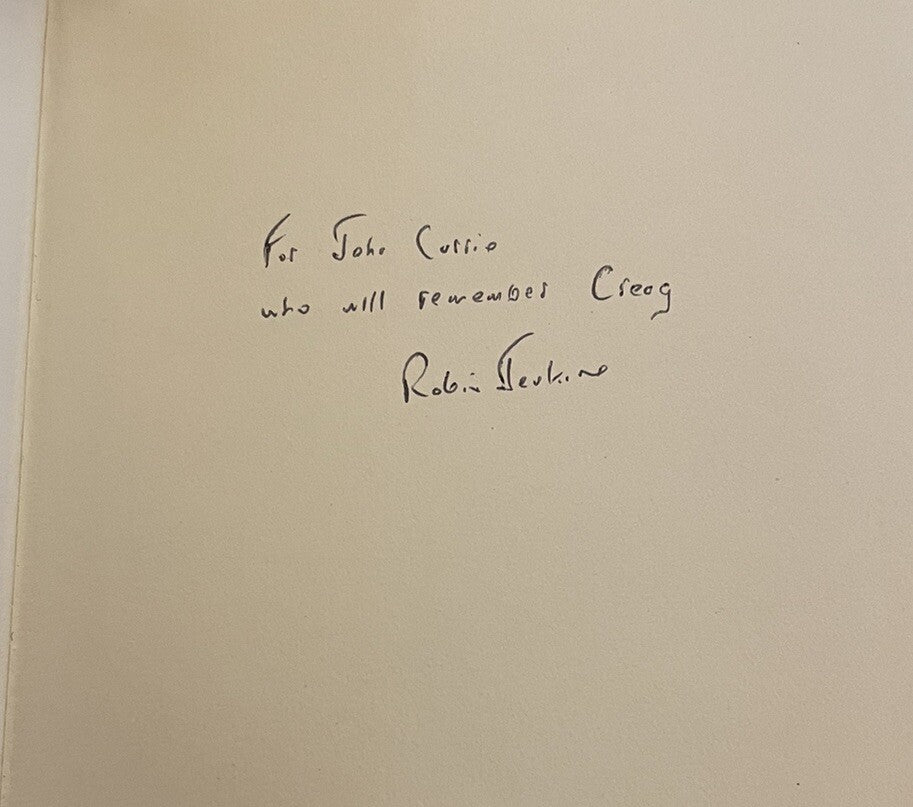 For John Currie
who will remember Creag
Robin Jenkins